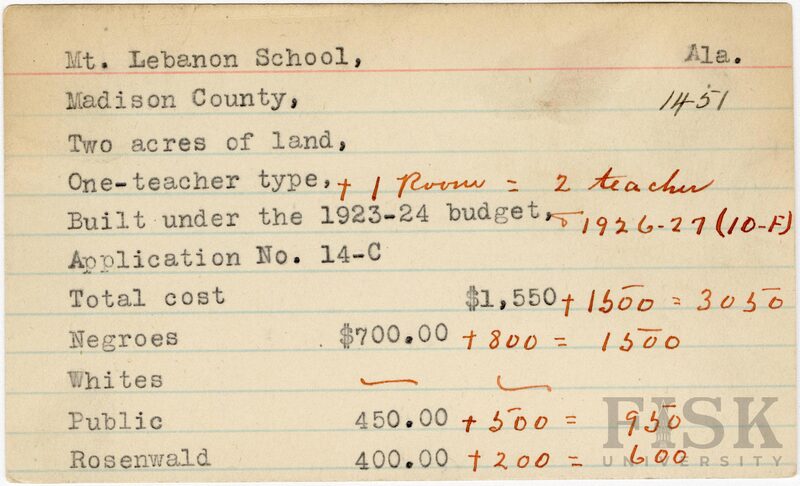 Mt. Lebanon School, Ala.
Madison County, 1451
Two acres of land,
One-teacher type, + 1 Room = 2 teacher
Built under the 1923-24 budget, & 1926-27 (10-F)
Application No. 14-C
Total cost $1,550 + 1500 = 3050
Negroes $700.00 + 800 = 1500
Whites — —
Public 450.00 + 500 = 950
Rosenwald 400.00 + 200 = 600
FISK
UNIVERSITY